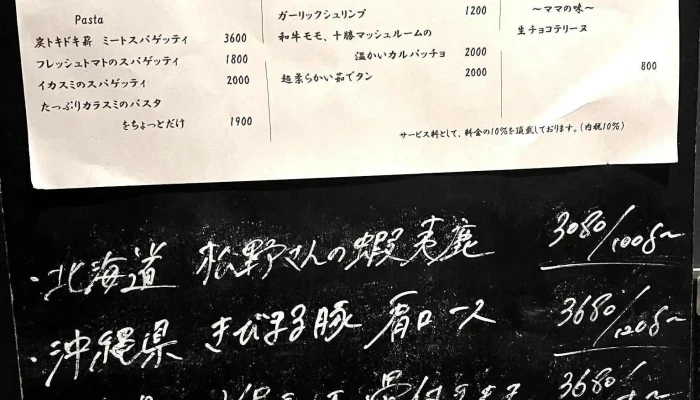 Pasta
炭トキドキ薪 ミートスパゲッティ 3600
フレッシュトマトのスパゲッティ 1800
イカスミのスパゲッティ 2000
たっぷりカラスミのパスタ
をちょっとだけ 1900
ガーリックシュリンプ 1200
和牛モモ、十勝マッシュルームの
温かいカルパッチョ 2000
超柔らかい茹でタン 2000
～ママの味～
生チョコテリーヌ
800
サービス料として、料金の10%を頂戴しております。(内税10%)
・北海道 松野さんの蝦夷鹿 3080/100g~
・沖縄県 きび子豚 肩ロース 3680/120g~
3680/